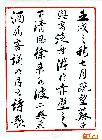 壬戌之秋七月既望蘇
子與客泛舟遊於赤壁之
下清風徐來水波不興舉
酒屬客誦明月之詩歌